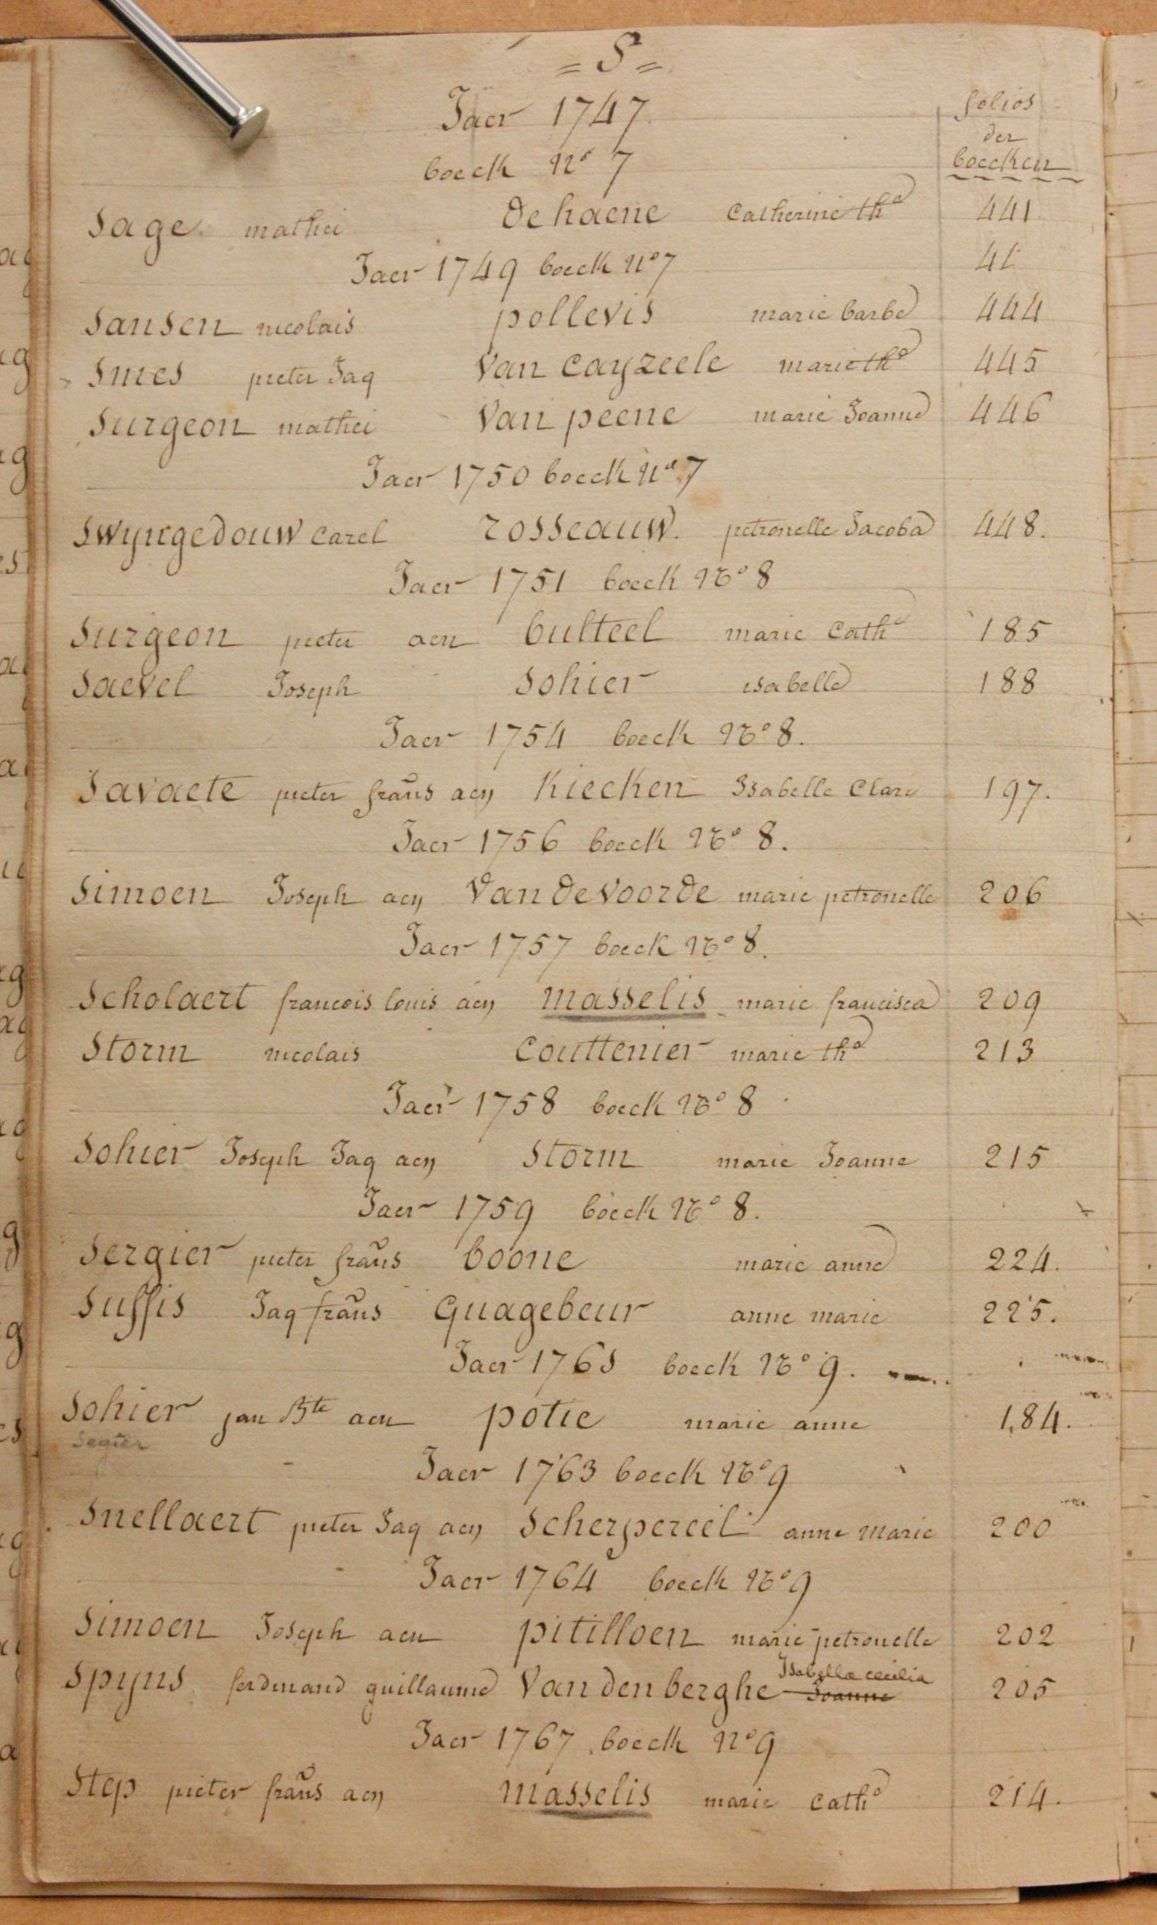 = S =
Jaer 1747
folios
der
boecken
boeck No 7
Sage mathei dehaene Catherine tha 441
Jaer 1749 boeck No 7 44
Sansen nicolais pollevis marie barbe 444
Smes pieter Jaq Van Cayzeele marie tha 445
Surgeon mathei Van peene marie Joanne 446
Jaer 1750 boeck No 7
Swyngedouw Carel rosseauw. petronelle Jacoba 448.
Jaer 1751 boeck No 8
Surgeon pieter aen bulteel marie Catha 185
Saevel Joseph Sohier isabelle 188
Jaer 1754 boeck No 8.
Savaete pieter frañs aen Kiecken Isabelle Clare 197.
Jaer 1756 boeck No 8.
Simoen Joseph aen Van de Voorde marie petronelle 206
Jaer 1757 boeck No 8.
Scholaert francois louis aen masselis marie francisca 209
Storm nicolais Couttenier marie tha 213
Jaer 1758 boeck No 8
Sohier Joseph Jaq aen Storm marie Joanne 215
Jaer 1759 boeck No 8.
Sergier pieter frañs boone marie anne 224.
Suffis Jaq frañs Quagebeur anne marie 225.
Jaer 1761 boeck No 9.
Sohier jan Bte aen potie marie anne 184.
Segier
Jaer 1763 boeck No 9
Snellaert pieter Jaq aen Scherpereel anne marie 200
Jaer 1764 boeck No 9
Simoen Joseph aen pitilloen marie petronelle 202
Isabelle cecilia
Spyns ferdinand guillaume Van den berghe Joanne 205
Jaer 1767 boeck No 9
Step pieter frañs aen masselis marie Catha 214.